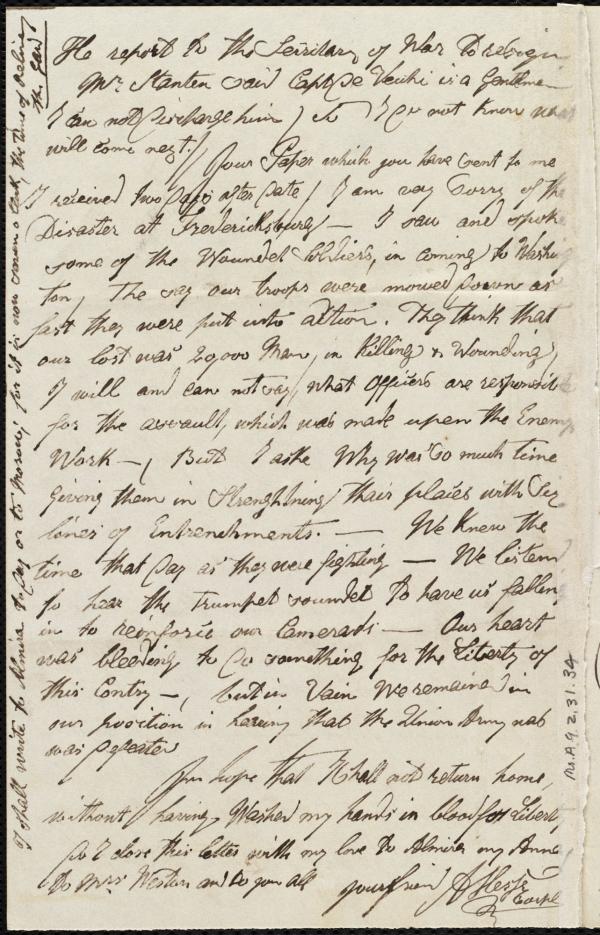 He report to the Serritary of War to resign
Mr Stanten said Capt De Vecchi is a Gentlmen
I can not Discharge him) so I do not know what
will come next. / Your Paper which you have sent to me
I received two Days after Date / I am very Sorry of the
Disaster at Fredericksburg — I saw and spoke
some of the Wounded Soldiers, in coming to Washing
ton, The say our troops were mowed Down as
fast they were put into action. They think that
our lost was 20,000 Man, in Killing & Wounding,
I will and can not say, what Officers are responsible
for the assault, which was made upon the Enemys
Work —, But I aske Why was so much time
Giving them in Strenghtning thair plaies with Six
lines of Entrenchments. — We Knew the
time that Day as they were fighting — We listend
to hear the trumpet sounded to have us falling
in to reinforce our Camerads — Our heart
was bleeding to Do something for the Liberty of
this Contry —, but in Vain We remained in
our position in hearing that the Union Army was
was Defeater
You hope that I shall not return home,
without having Washed my hands in blood for Liberty
so I close this letter with my love to Almira my Anne
to Mrs. Weston and to you all your friend
Ms.A.9.2.31.34
I shall write to Almira to Day or to Morow, for it is now seven o clock, the time of Reliev
the Gard